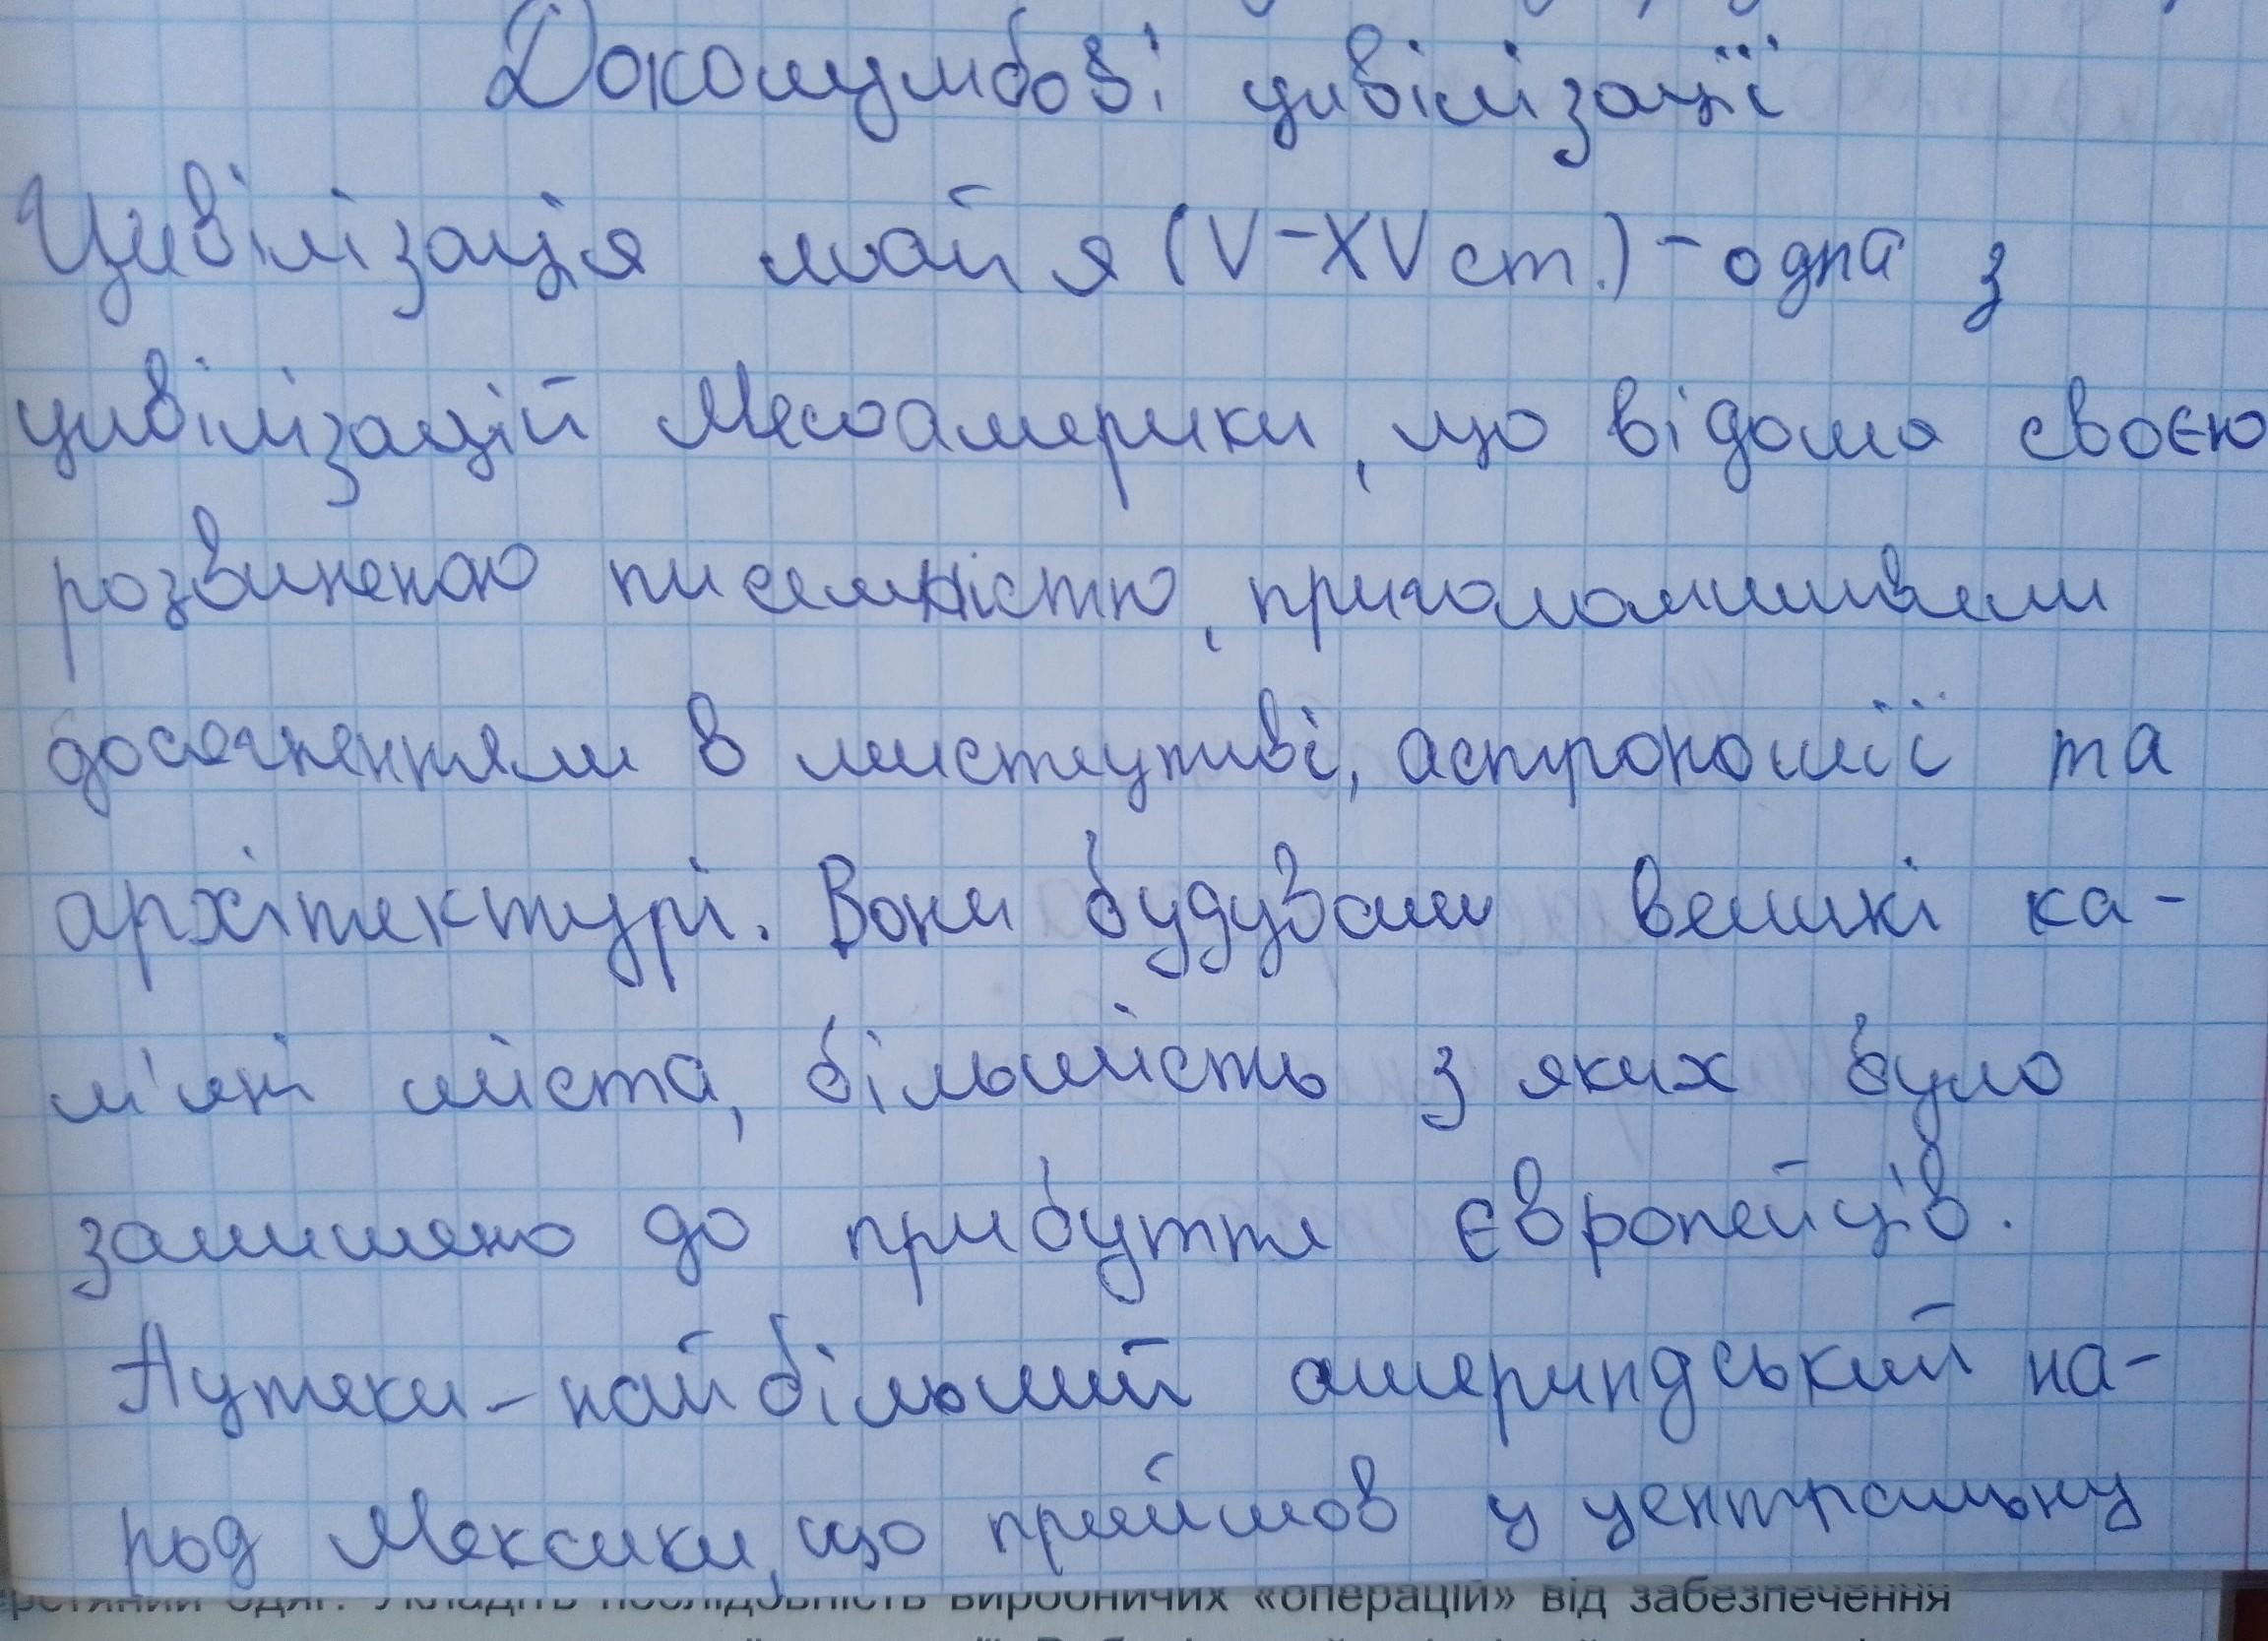 Доколумбові цивілізації
Цивілізація майя (V-XVст.) - одна з
цивілізацій Месоамерики, що відома своєю
розвиненою писемністю, приголомшливими
досягненнями в мистецтві, астрономії та
архітектурі. Вони будували великі ка-
м'яні міста, більшість з яких було
залишено до прибуття європейців.
Ацтеки - найбільший америндський на-
род Мексики, що прийшов у центральну
одяг. Укладіть послідовність виробничих «операцій» від забезпечення